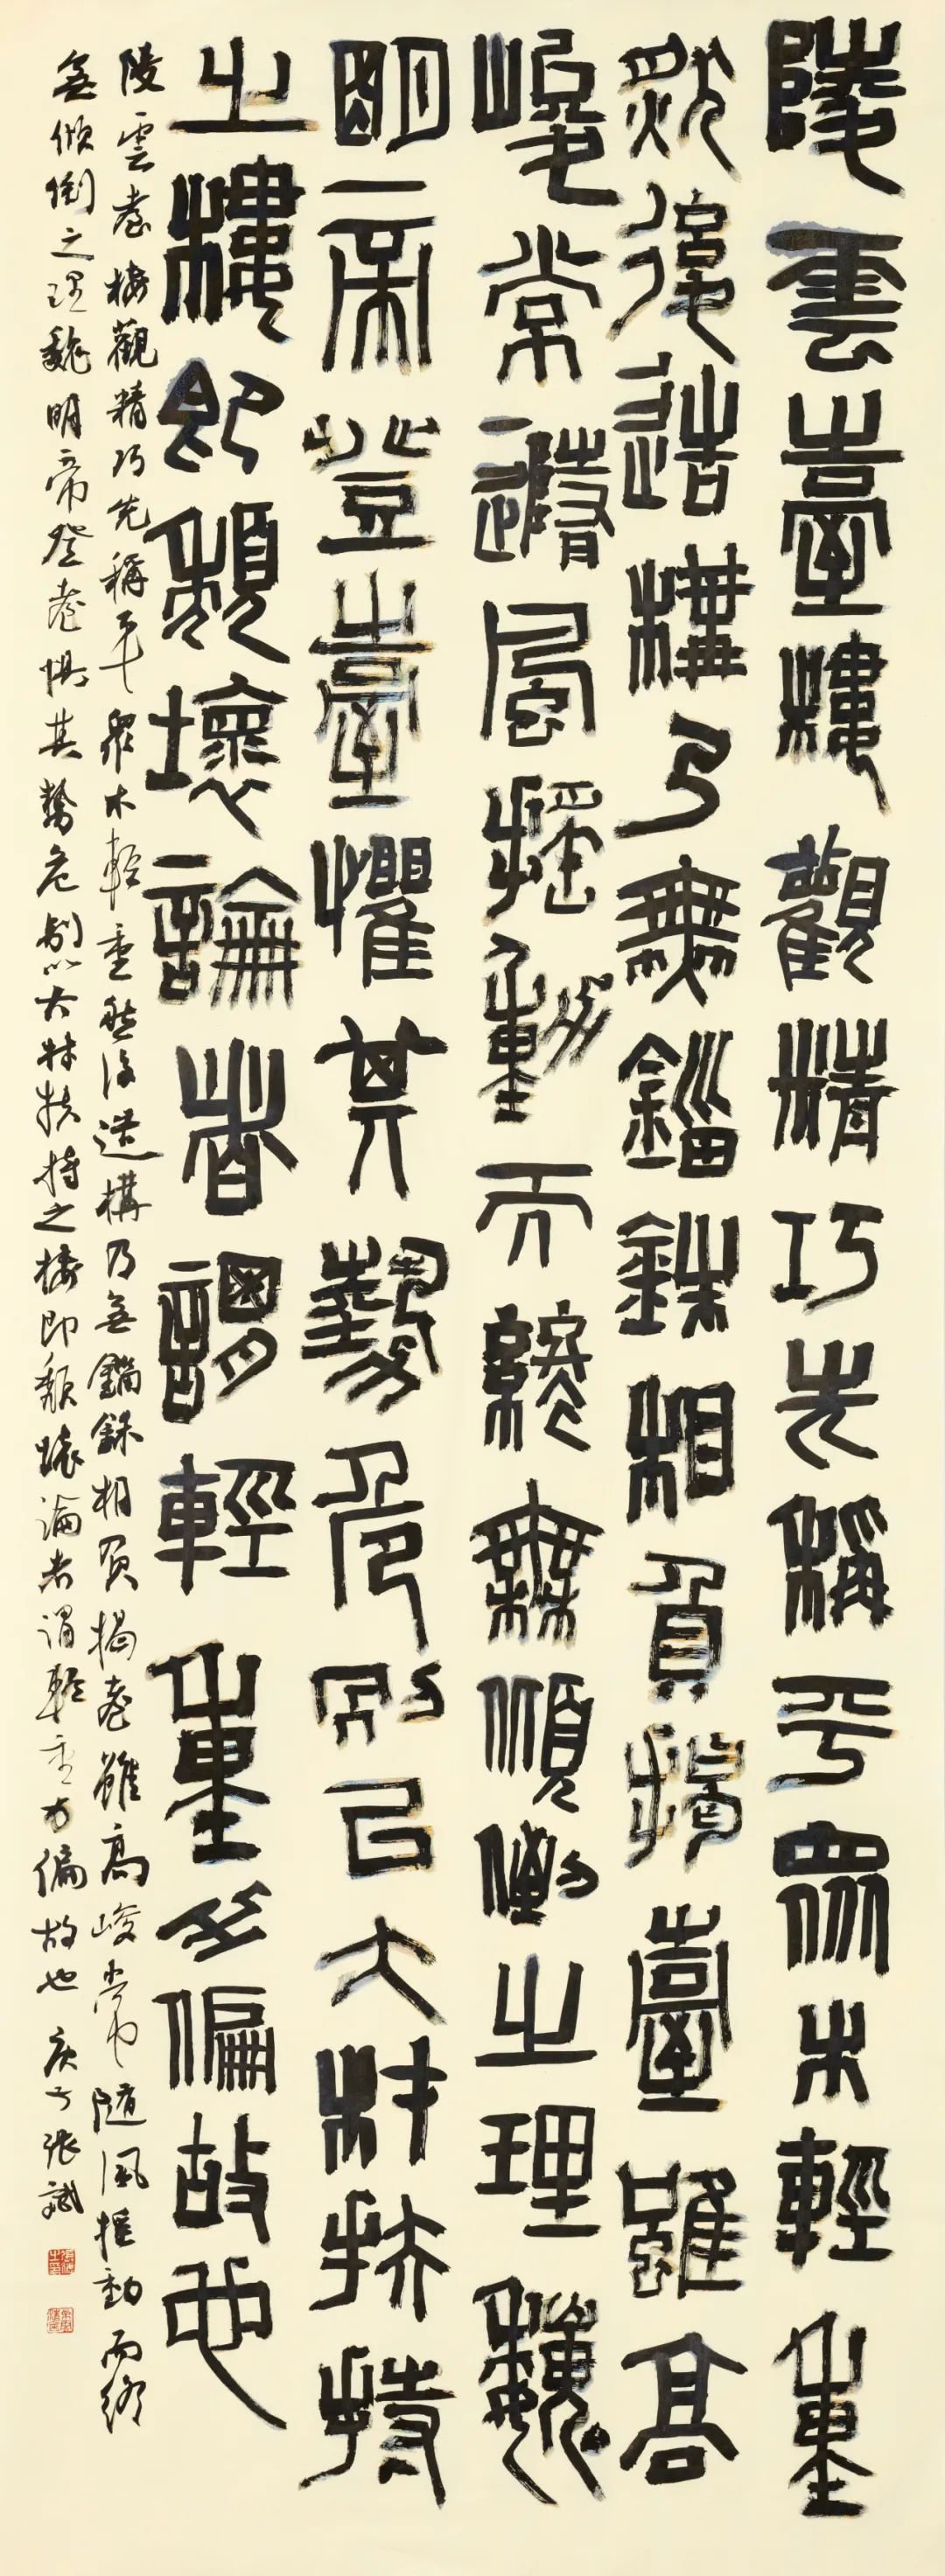 陵雲臺樓觀精巧先稱平衆木輕重
然後造構乃無錙銖相負揭臺雖高
峻常隨風搖動而終無傾倒之理魏
明帝登臺懼其勢危別以大材扶持
之樓即頹壞論者謂輕重力偏故也
陵雲臺樓觀精巧先稱平衆木輕重然後造構乃無錙銖相負揭臺雖高峻常隨風搖動而終
無傾倒之理魏明帝登臺懼其勢危別以大材扶持之樓即頹壞論者謂輕重力偏故也 庚子 張斌